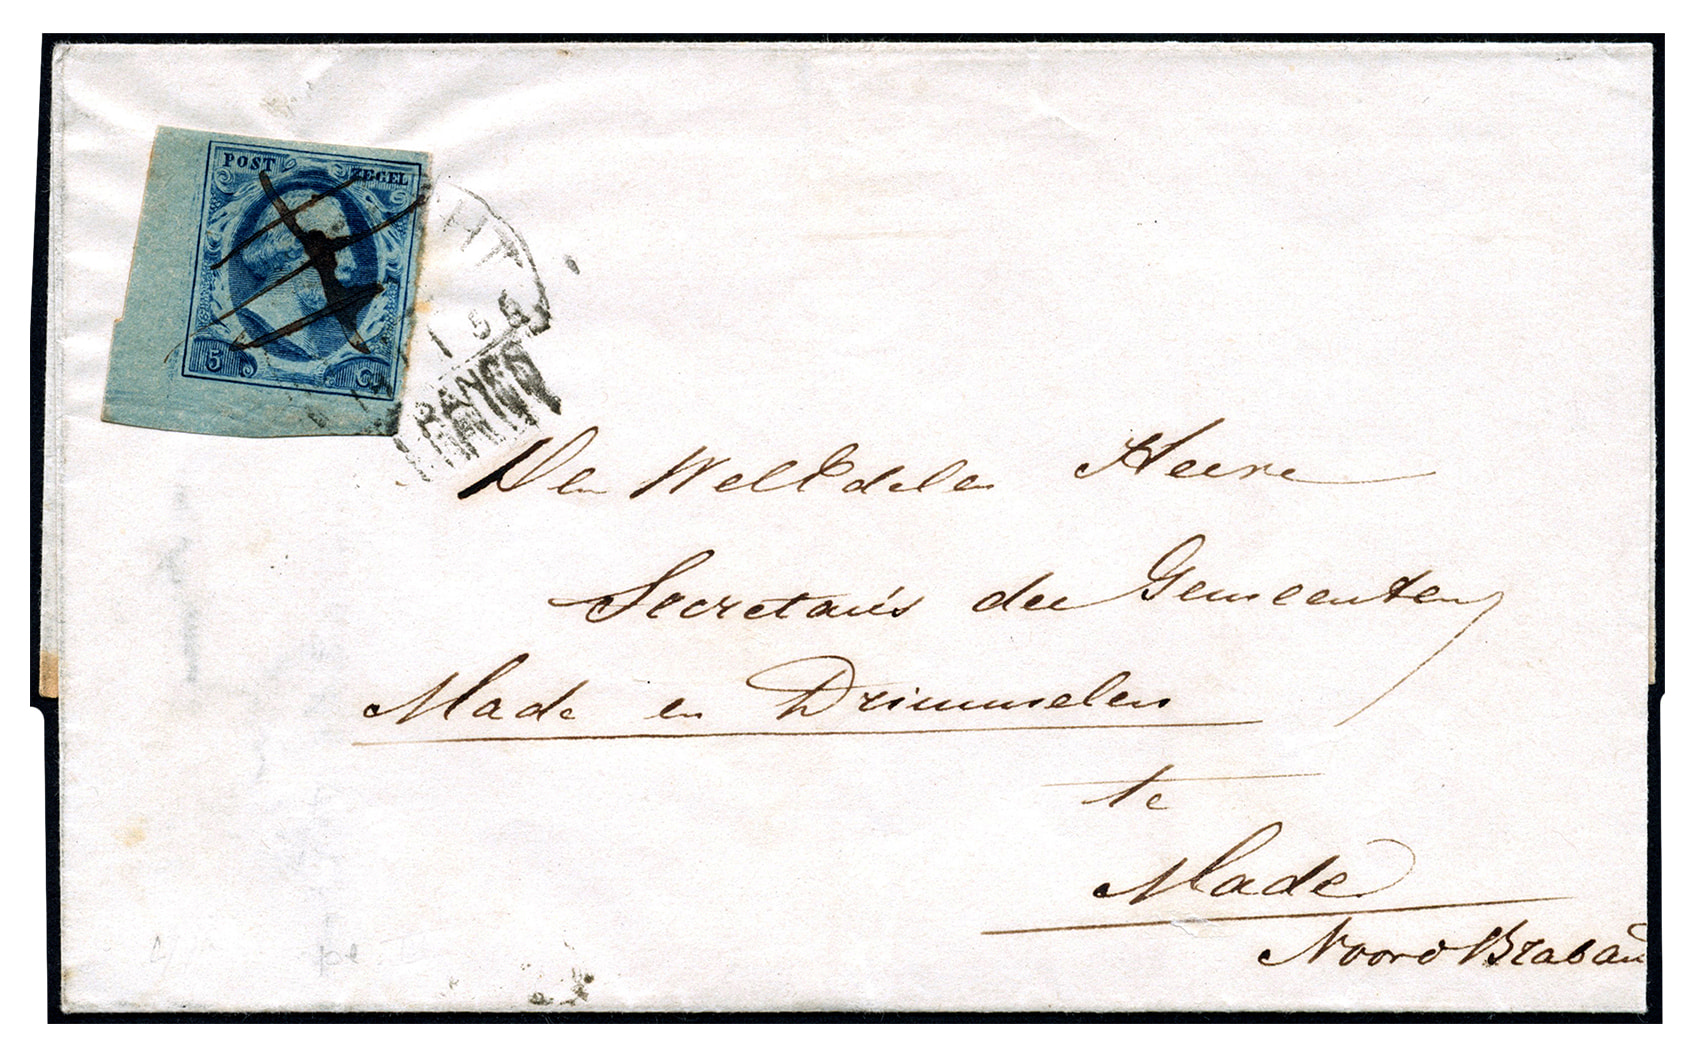 POST ZEGEL
5 Ct
CHT
FRANCO
Den WelEdelen Heere
Secretaris der Gemeenten
Made en Drimmelen
te
Made
Noord Braban